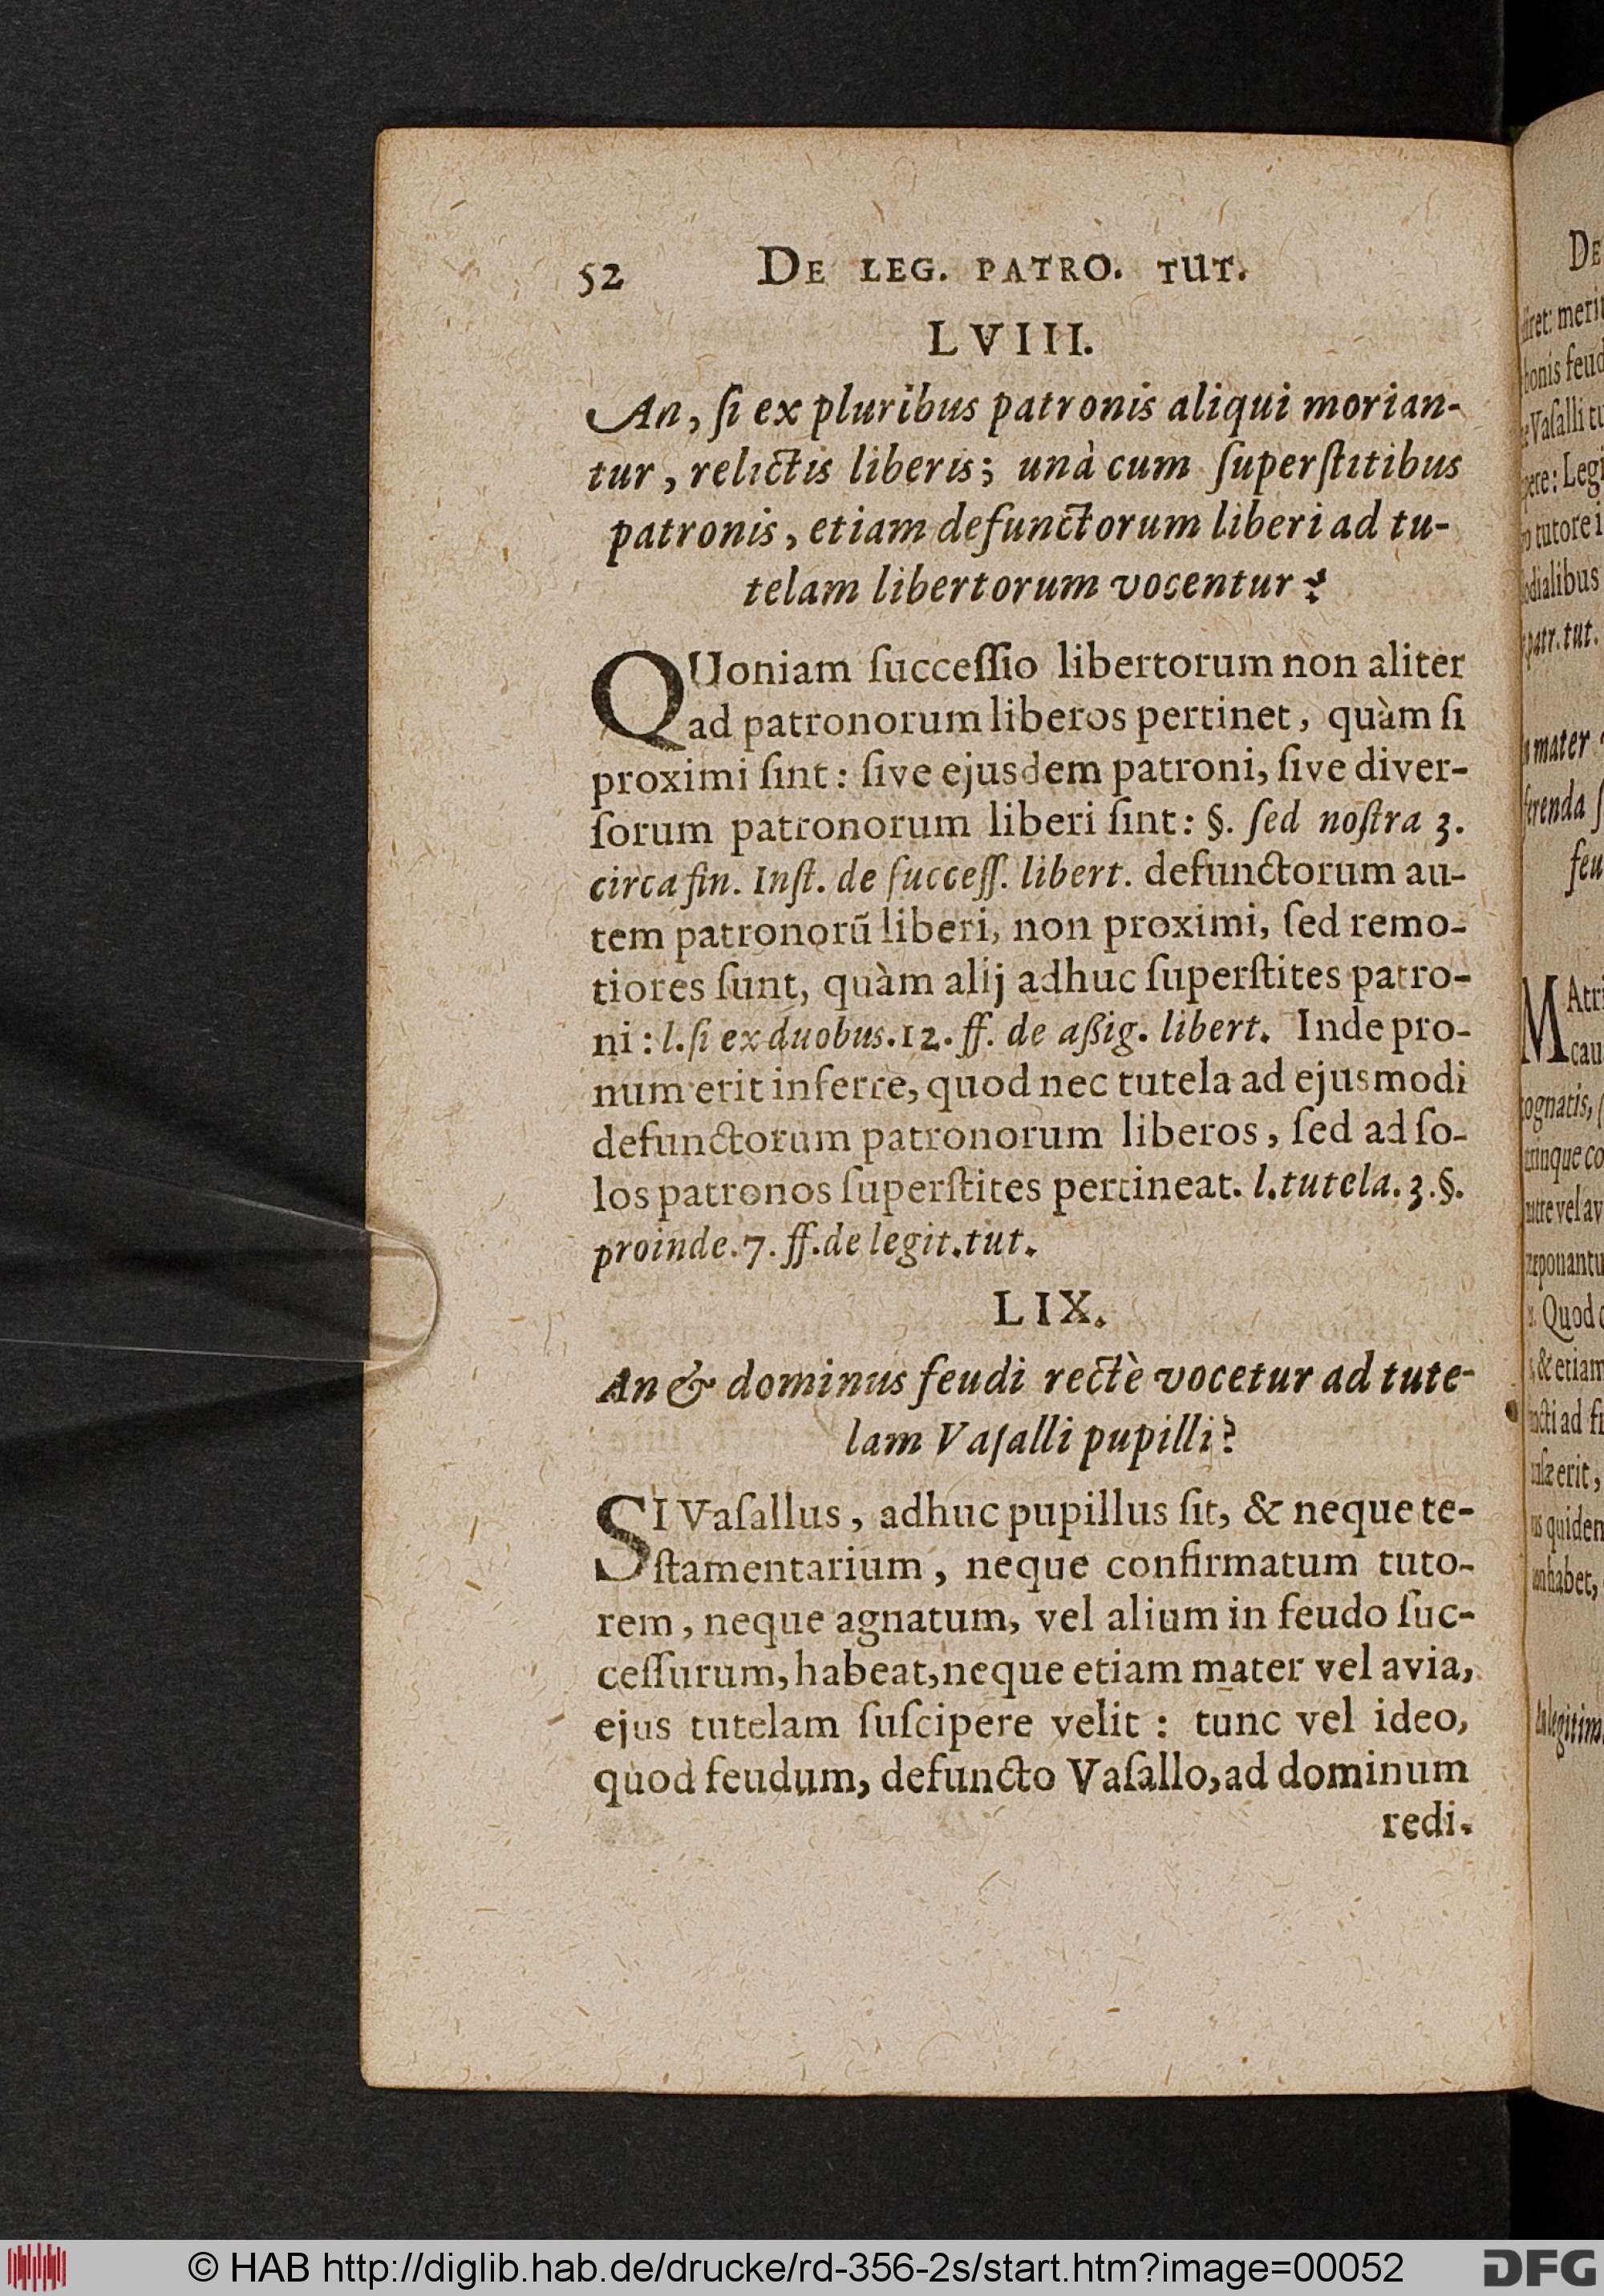 52 DE LEG. PATRO. TUT.
LVIII.
An, ſi ex pluribus patronis aliqui morian-
tur, relictis liberis; unà cum ſuperſtitibus
patronis, etiam defunctorum liberi ad tu-
telam libertorum vocentur?
QUoniam ſucceſſio libertorum non aliter
ad patronorum liberos pertinet, quàm ſi
proximi ſint: ſive ejusdem patroni, ſive diver-
ſorum patronorum liberi ſint: §. ſed noſtra 3.
circa fin. Inſt. de ſucceſſ. libert. defunctorum au-
tem patronorũ liberi, non proximi, ſed remo-
tiores ſunt, quàm alij adhuc ſuperſtites patro-
ni: l. ſi ex duobus. 12. ff. de aßig. libert. Inde pro-
num erit inferre, quod nec tutela ad ejusmodi
defunctorum patronorum liberos, ſed ad ſo-
los patronos ſuperſtites pertineat. l. tutela. 3. §.
proinde. 7. ff. de legit. tut.
LIX.
An & dominus feudi rectè vocetur ad tute-
lam Vaſalli pupilli?
SI Vaſallus, adhuc pupillus ſit, & neque te-
ſtamentarium, neque confirmatum tuto-
rem, neque agnatum, vel alium in feudo ſuc-
ceſſurum, habeat, neque etiam mater vel avia,
ejus tutelam ſuſcipere velit: tunc vel ideo,
quòd feudum, defuncto Vaſallo, ad dominum
redi-
DE
merit
feud
Vaſalli tu
Legi
tutore i
patr. tut.
mater
feu
MAtri
cau
vel av
Quod
& etiam
ad fi
erit,
quidem
© HAB http://diglib.hab.de/drucke/rd-356-2s/start.htm?image=00052
DFG